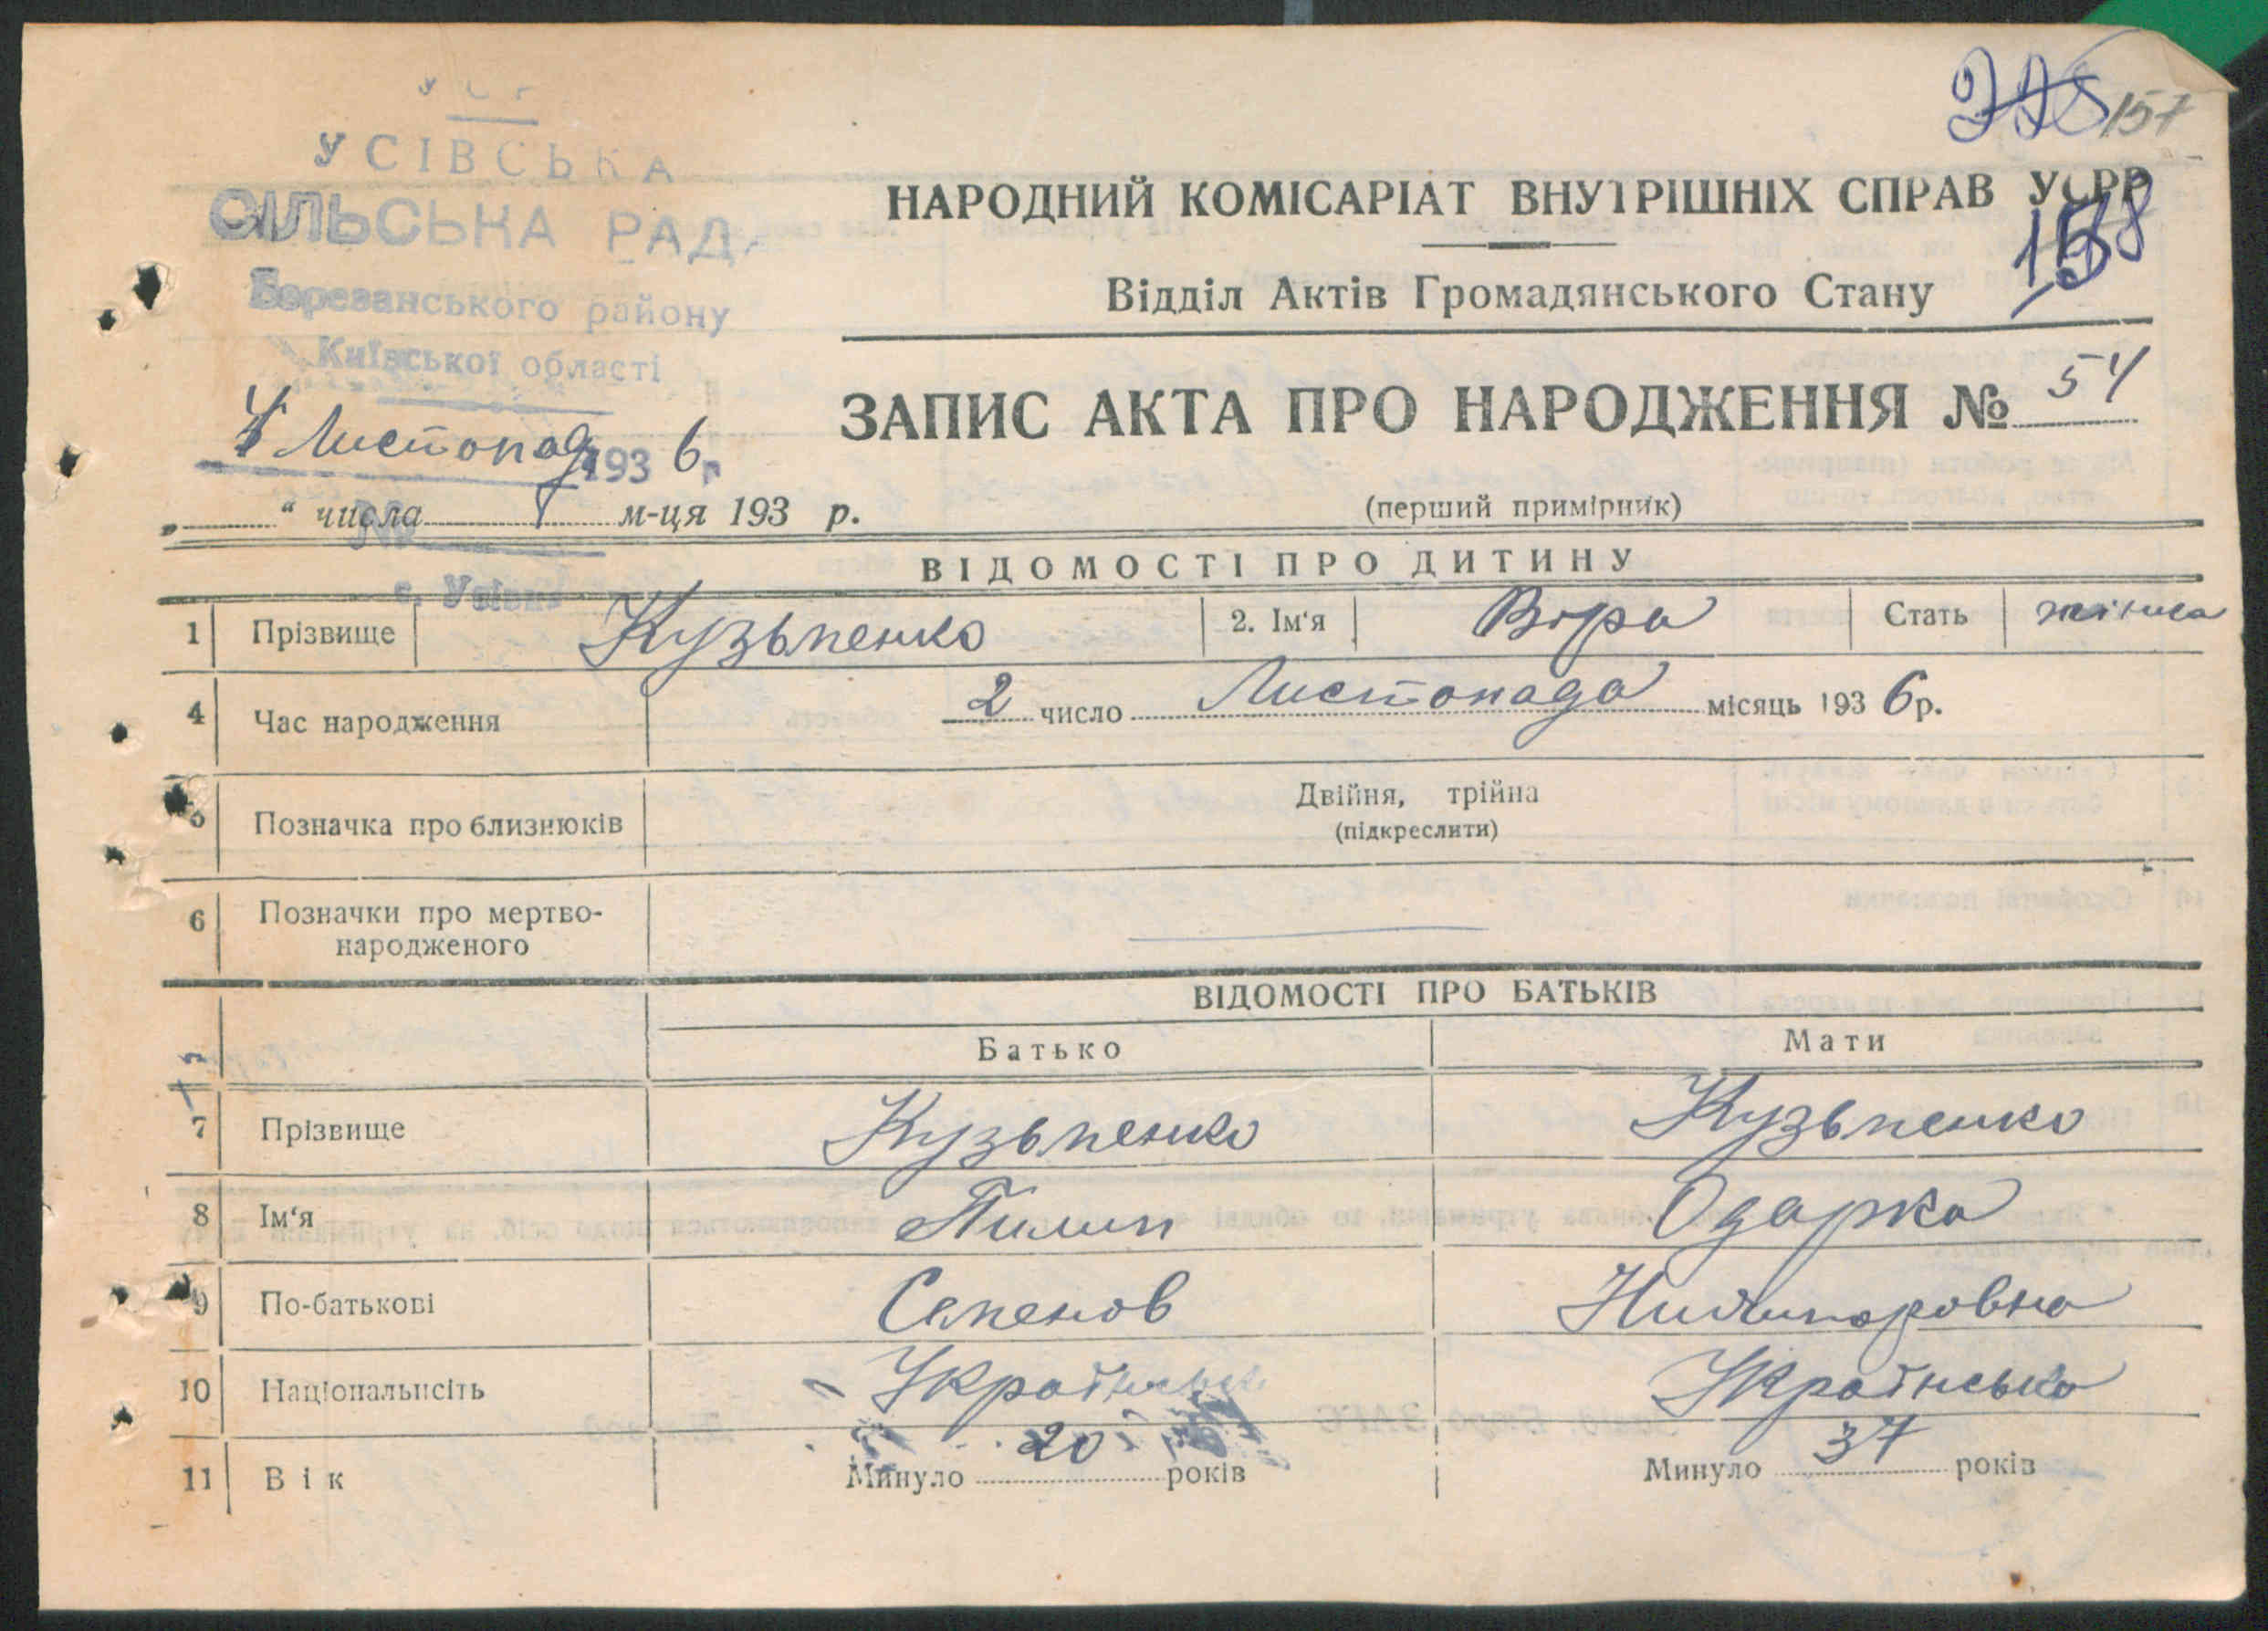 УСІВСЬКА
СІЛЬСЬКА РАДА
Березанського району
Київської області
4 Листопад 1936 р
№
с. Усівка
225 157
158
НАРОДНИЙ КОМІСАРІАТ ВНУТРІШНІХ СПРАВ УСРР
Відділ Актів Громадянського Стану
ЗАПИС АКТА ПРО НАРОДЖЕННЯ № 54
„ “ числа м-ця 193 р. (перший примірник)
ВІДОМОСТІ ПРО ДИТИНУ
1 Прізвище Кузьменко 2. Ім'я Віра Стать жіноча
4 Час народження 2 число Листопада місяць 1936 р.
5 Позначка про близнюків Двійня, трійна
(підкреслити)
6 Позначки про мертво-
народженого
ВІДОМОСТІ ПРО БАТЬКІВ
Батько Мати
7 Прізвище Кузьменко Кузьменко
8 Ім'я Пилип Одарка
9 По-батькові Семенов Ничипоровна
10 Національнсіть Українська Українська
11 Вік Минуло 20 років Минуло 37 років